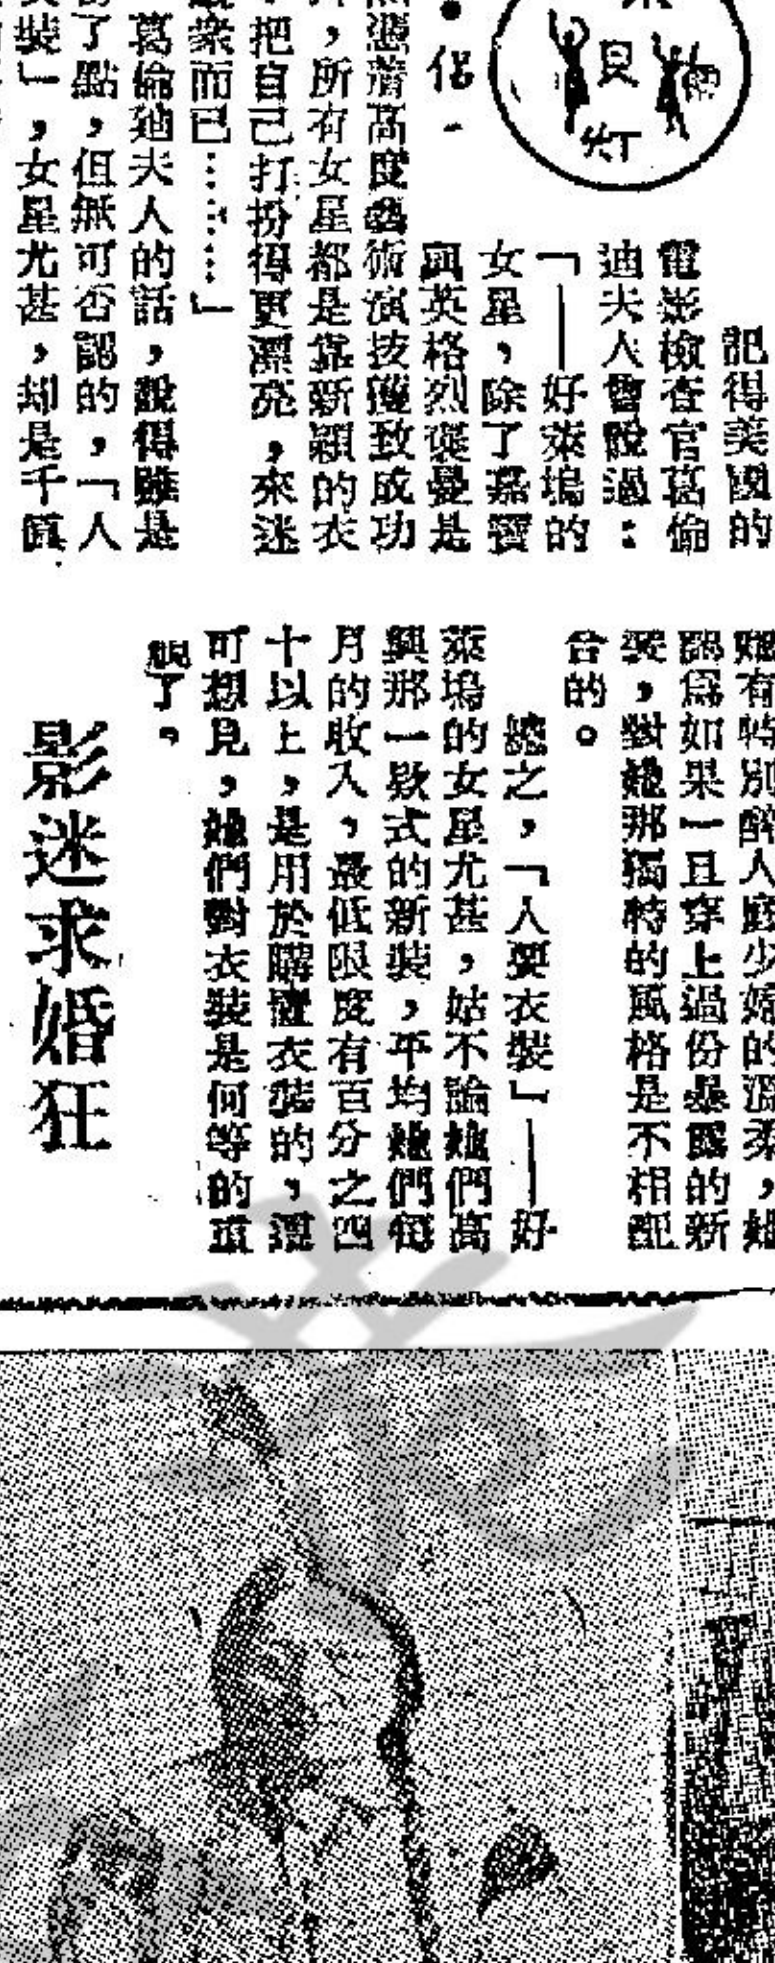 記得美國的
電影檢查官葛倫
迪夫人曾說過：
「——好萊塢的
女星，除了嘉寶
與英格烈褒曼是
憑着高度藝術演技獲致成功
，所有女星都是靠新穎的衣
把自己打扮得更漂亮，來迷
衆而已………」
葛倫迪夫人的話，說得雖是
了點，但無可否認的，「人
裝」，女星尤甚，却是千眞
侶
貝
灯
她有特別醉人底少婦的溫柔，她
認爲如果一旦穿上過份暴露的新
裝，對她那獨特的風格是不相配
合的。
總之，「人要衣裝」——好
萊塢的女星尤甚，姑不論她們高
興那一欵式的新裝，平均她們每
月的收入，最低限度有百分之四
十以上，是用於購置衣裝的，還
可想見，她們對衣裝是何等的重
視了。
影迷求婚狂